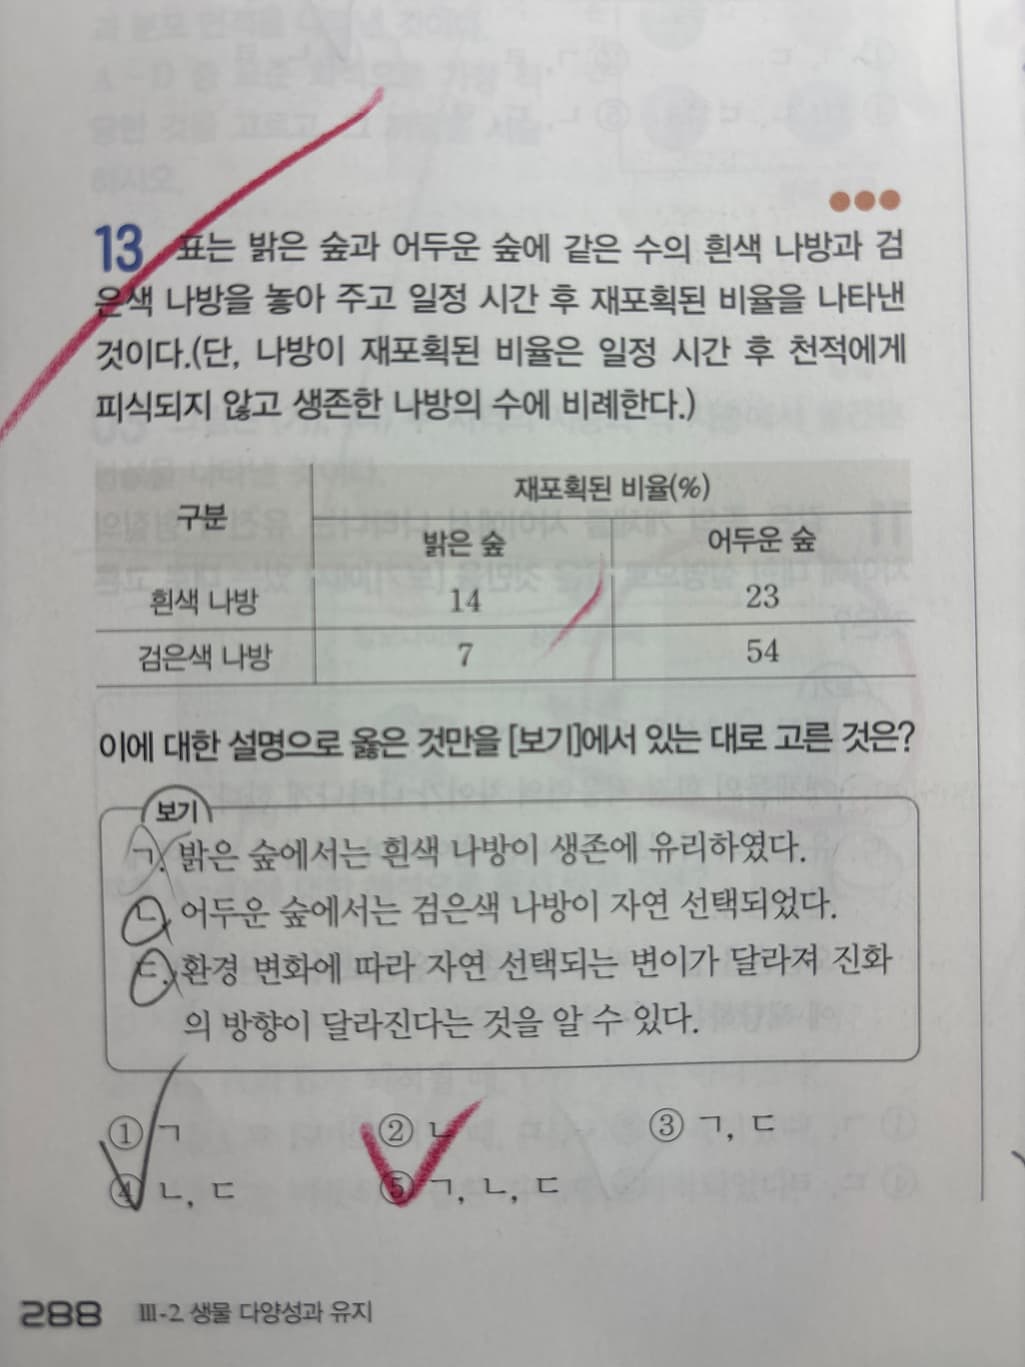 13 표는 밝은 숲과 어두운 숲에 같은 수의 흰색 나방과 검
은색 나방을 놓아 주고 일정 시간 후 재포획된 비율을 나타낸
것이다.(단, 나방이 재포획된 비율은 일정 시간 후 천적에게
피식되지 않고 생존한 나방의 수에 비례한다.)
구분 재포획된 비율(%)
밝은 숲 어두운 숲
흰색 나방 14 23
검은색 나방 7 54
이에 대한 설명으로 옳은 것만을 [보기]에서 있는 대로 고른 것은?
보기
ㄱ. 밝은 숲에서는 흰색 나방이 생존에 유리하였다.
ㄴ. 어두운 숲에서는 검은색 나방이 자연 선택되었다.
ㄷ. 환경 변화에 따라 자연 선택되는 변이가 달라져 진화
의 방향이 달라진다는 것을 알 수 있다.
① ㄱ ② ㄴ ③ ㄱ, ㄷ
④ ㄴ, ㄷ ⑤ ㄱ, ㄴ, ㄷ
288 Ⅲ-2. 생물 다양성과 유지